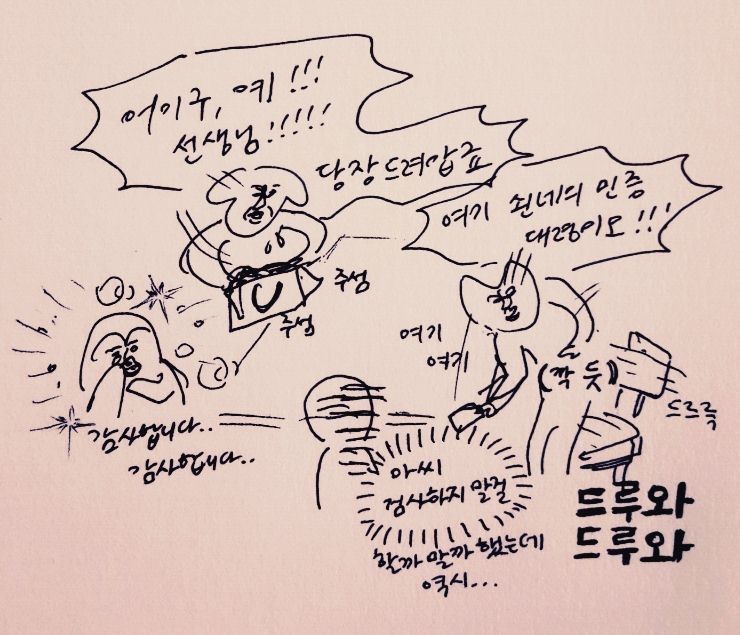 어이구, 예!!!
선생님!!!!!
당장드려얍죠
여기 쇤네의 민증
대령이오!!!
주섬
주섬
여기
여기
(깍듯)
드르륵
감사합니다..
감사합니다..
아씨
검사하지 말걸
할까 말까 했는데
역시...
드루와
드루와